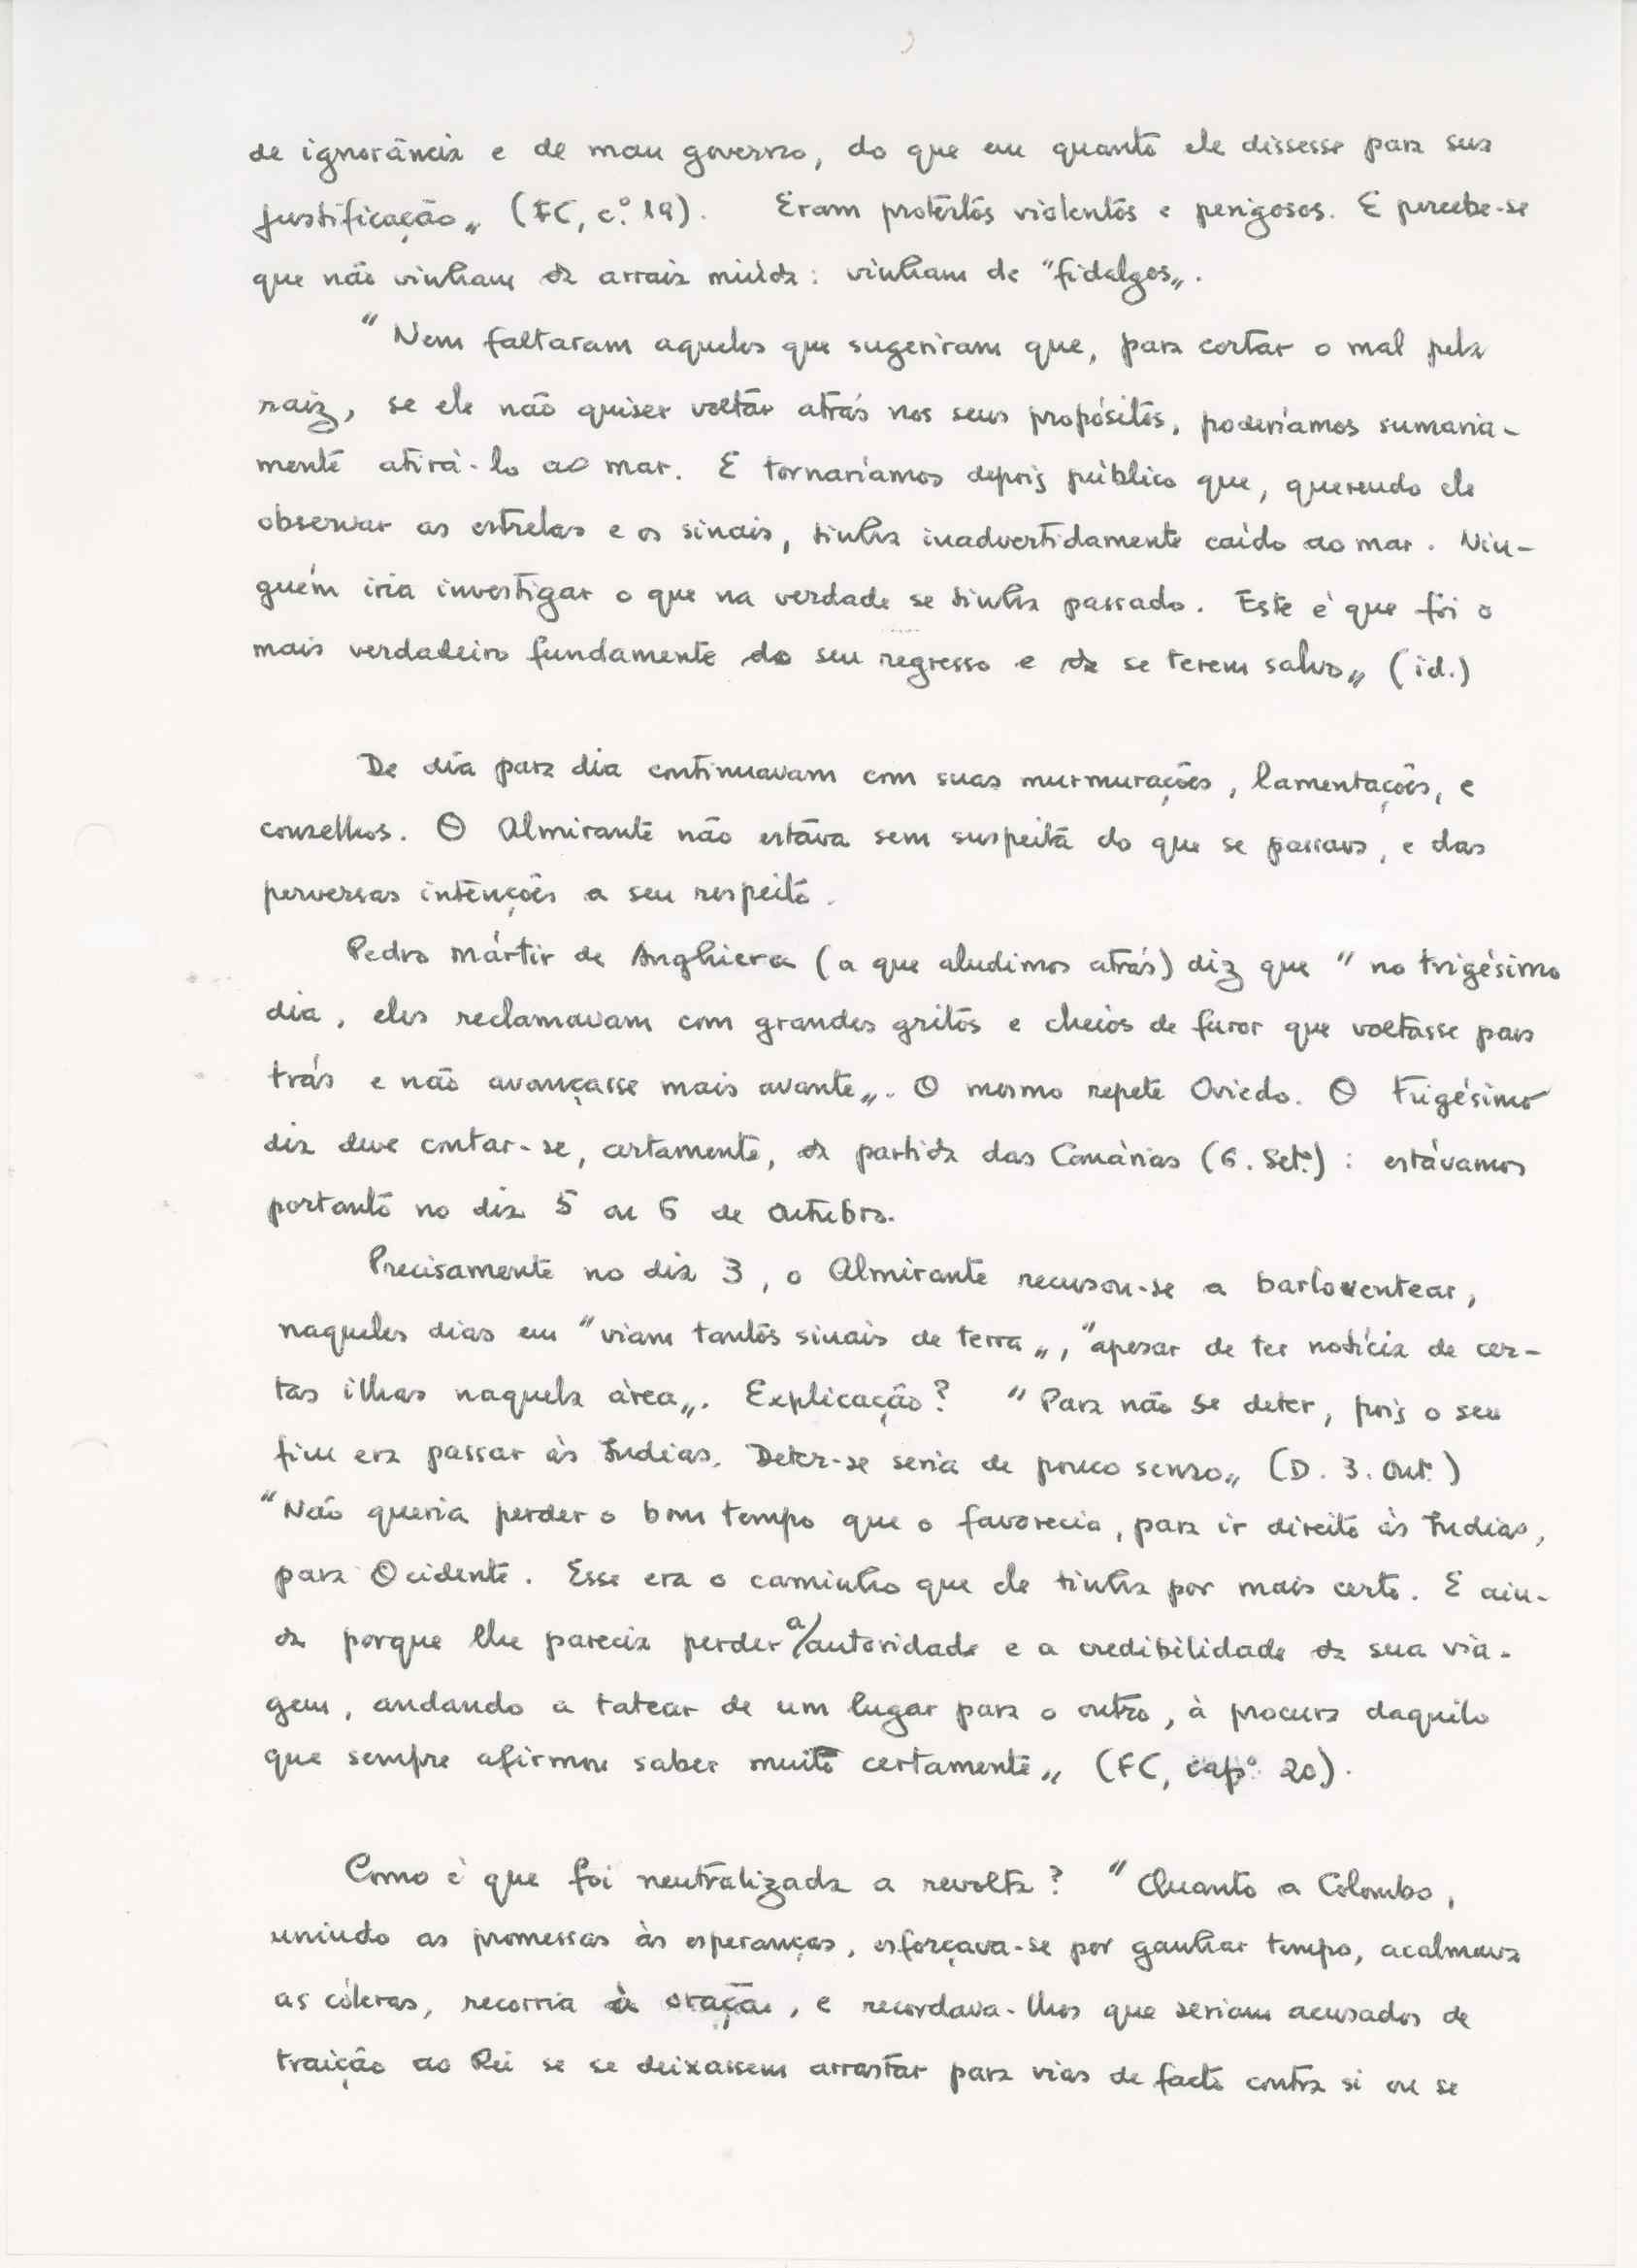 de ignorância e de mau governo, do que em quanto ele dissesse para sua
justificação„ (FC, c.º 19). Eram protestos violentos e perigosos. E percebe-se
que não vinham da arraia miúda: vinham de "fidalgos„.
"Nem faltaram aqueles que sugeriram que, para cortar o mal pela
raiz, se ele não quiser voltar atrás nos seus propósitos, poderíamos sumaria-
mente atirá-lo ao mar. E tornaríamos depois público que, querendo ele
observar as estrelas e os sinais, tinha inadvertidamente caído ao mar. Nin-
guém iria investigar o que na verdade se tinha passado. Este é que foi o
mais verdadeiro fundamento do seu regresso e de se terem salvo„ (id.)
De dia para dia continuavam com suas murmurações, lamentações, e
conselhos. O Almirante não estava sem suspeita do que se passava, e das
perversas intenções a seu respeito.
Pedro Mártir de Anghiera (a que aludimos atrás) diz que "no trigésimo
dia, eles reclamavam com grandes gritos e cheios de furor que voltasse para
trás e não avançasse mais avante„. O mesmo repete Oviedo. O trigésimo
dia deve contar-se, certamente, da partida das Canárias (6. Set.º): estávamos
portanto no dia 5 ou 6 de Outubro.
Precisamente no dia 3, o Almirante recusou-se a barloventear,
naqueles dias em "viam tantos sinais de terra„, "apesar de ter notícia de cer-
tas ilhas naquela área„. Explicação? "Para não se deter, pois o seu
fim era passar às Índias. Deter-se seria de pouco senso„ (D. 3. Out.)
"Não queria perder o bom tempo que o favorecia, para ir direito às Índias,
para Ocidente. Esse era o caminho que ele tinha por mais certo. E ain-
da porque lhe parecia perder a autoridade e a credibilidade da sua via-
gem, andando a tatear de um lugar para o outro, à procura daquilo
que sempre afirmou saber muito certamente„ (FC, cap.º 20).
Como é que foi neutralizada a revolta? "Quanto a Colombo,
unindo as promessas às esperanças, esforçava-se por ganhar tempo, acalmava
as cóleras, recorria à oração, e recordava-lhes que seriam acusados de
traição ao Rei se se deixassem arrastar para vias de facto contra si ou se